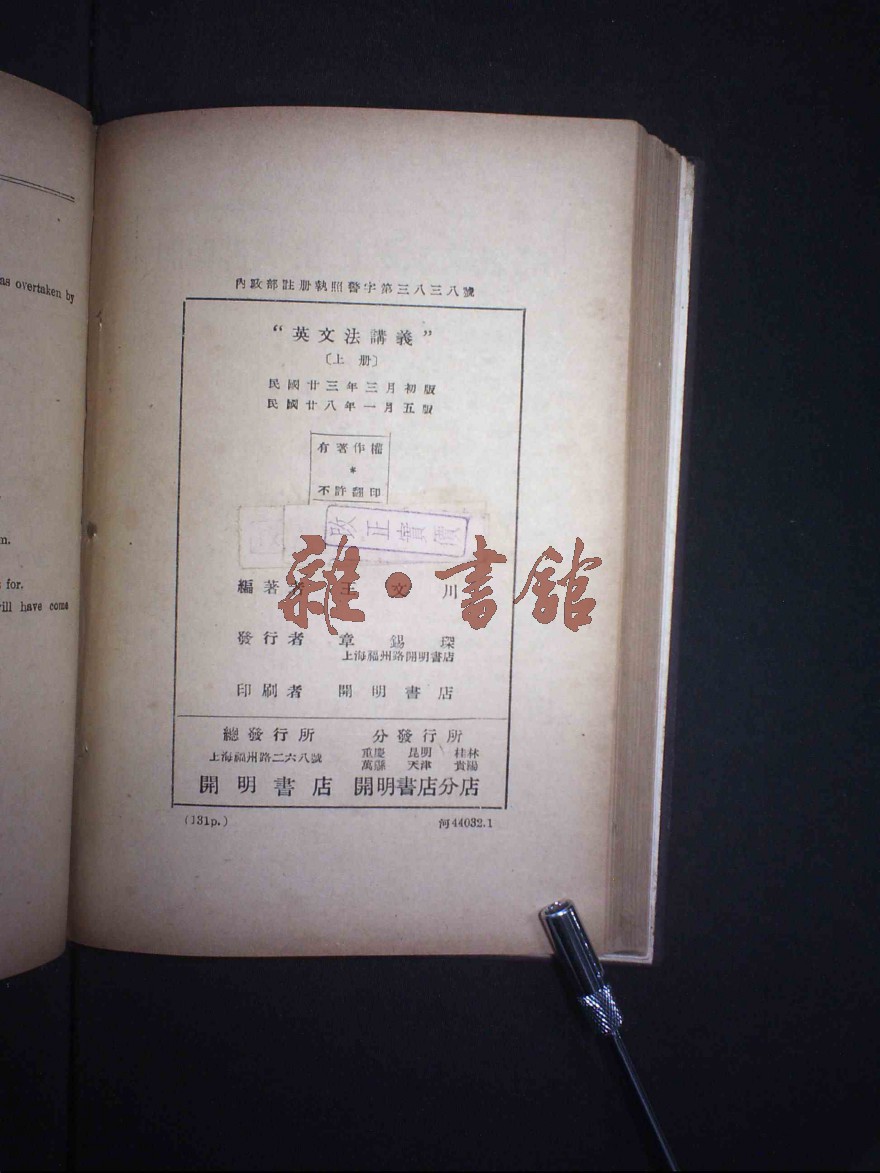 as overtaken by
m.
for.
ill have come
內政部註册執照警字第三八三八號
“英文法講義”
〔上册〕
民國廿三年三月初版
民國廿八年一月五版
有著作權
*
不許翻印
改正實價
雜·書館
編著者 王文川
發行者 章錫琛
上海福州路開明書店
印刷者 開明書店
總發行所 分發行所
上海福州路二六八號 重慶 昆明 桂林
萬縣 天津 貴陽
開明書店 開明書店分店
(131p.) 河44032.1